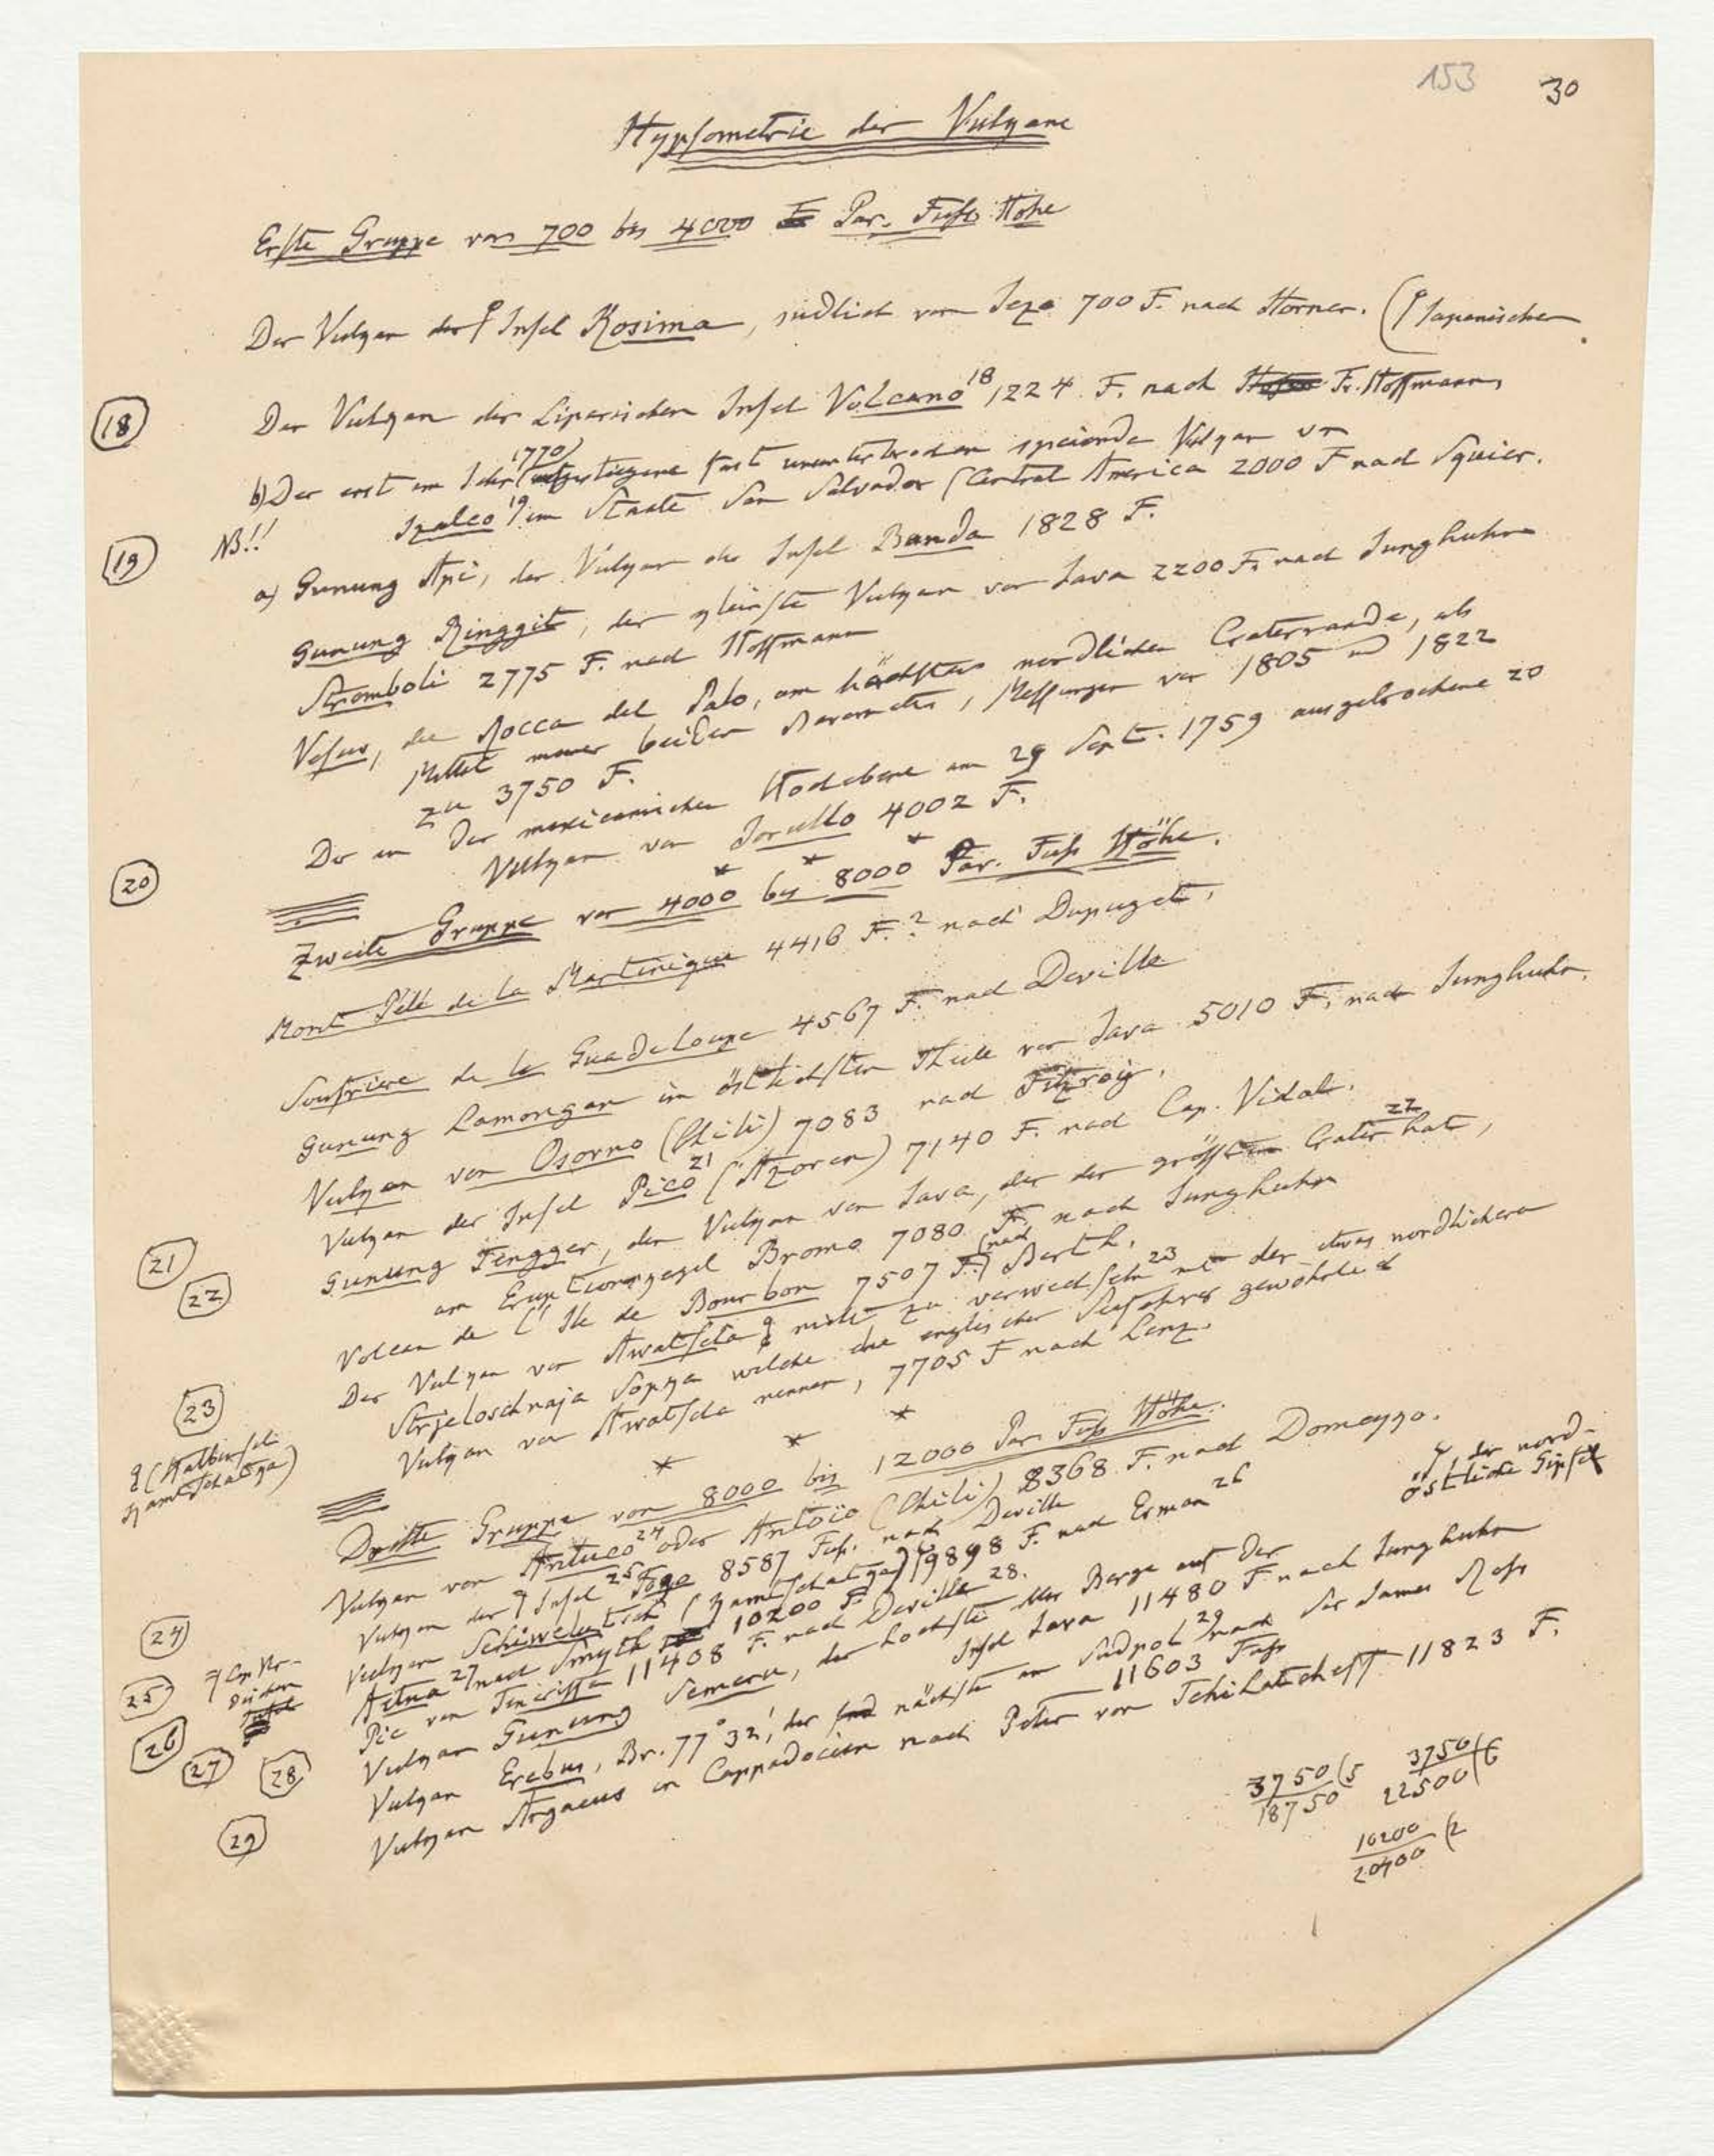 153 30
Hypsometrie der Vulkane
Erste Gruppe von 700 bis 4000 Par. Fuss Höhe
Der Vulkan der Insel Kosima, südlich von Jezo 700 F. nach Horner. (Japanischen
18
Der Vulkan der Liparischen Insel Volcano 18 1224 F. nach Fr. Hoffmann
1770
b) Der erst im Jahr aufgestiegene fast ununterbrochen speiende Vulkan von
NB!! Izalco 19 im Staate San Salvador (Central America 2000 F nach Squier.
19
a) Gunung Api, der Vulkan der Insel Banda 1828 F.
Gunung Ringgit, der kleinste Vulkan von Java 2200 F. nach Junghuhn
Stromboli 2775 F. nach Hoffmann
Vesuv, die Rocca del Palo, am höchsten nördlichen Craterrande, als
Mittel meiner beiden Barometer, Messungen von 1805 und 1822
zu 3750 F.
Der in der mexicanischen Hochebene am 29 Sept. 1759 ausgebrochene 20
Vulkan von Jorullo 4002 F.
20
* * *
Zweite Gruppe von 4000 bis 8000 Par. Fuss Höhe.
Mont Pelé de la Martinique 4416 F.? nach Dupuget.
Soufrière de la Guadeloupe 4567 F. nach Deville
Gunung Lamongan im östlichsten Theile von Java 5010 F. nach Junghuhn.
Vulkan von Osorno (Chili) 7083 nach Fitzroy.
Vulkan der Insel Pico 21 (Azoren) 7140 F. nach Cap. Vidal.
21
22
Gunung Tengger, der Vulkan von Java, der den grössten Crater 22 hat,
am Eruptionskegel Bromo 7080 F. nach Junghuhn
Volcan de l'Ile de Bourbon 7507 F. (nach Berth.
Der Vulkan von Awatscha nicht zu verwechseln 23 mit der etwas nördlichern
Strjeloschnaja Sopka welche die englischen Seefahrer gewöhnlich
Vulkan von Awatscha nennen, 7705 F nach Lenz.
23
(Halbinsel
Kamtschatka)
* * *
Dritte Gruppe von 8000 bis 12000 Par. Fuss Höhe.
Vulkan von Antuco 24 oder Antoïo (Chili) 8368 F. nach Domeyko.
Vulkan der Insel 25 Fogo 8587 Fuss. nach Deville
Vulkan Schiwelutsch (Kamtschatka) 9898 F. nach Erman 26
der nord-
östliche Gipfel
24
25
Cap Ver-
dischen
Aetna 27 nach Smyth 10200 F.
Pic von Teneriffa 11408 F. nach Deville 28.
Vulkan Gunung Semeru, der höchste aller Berge auf der
Insel Java 11480 F nach Junghuhn
26
27
28
Vulkan Erebus, Br. 77° 32', der nächste am Südpol 29 nach Sir James Ross
11603 Fuss
Vulkan Argaeus in Cappadocien nach Peter von Tchihatcheff 11823 F.
29
3750 (5
18750
3750 (6
22500
10200 (2
20400